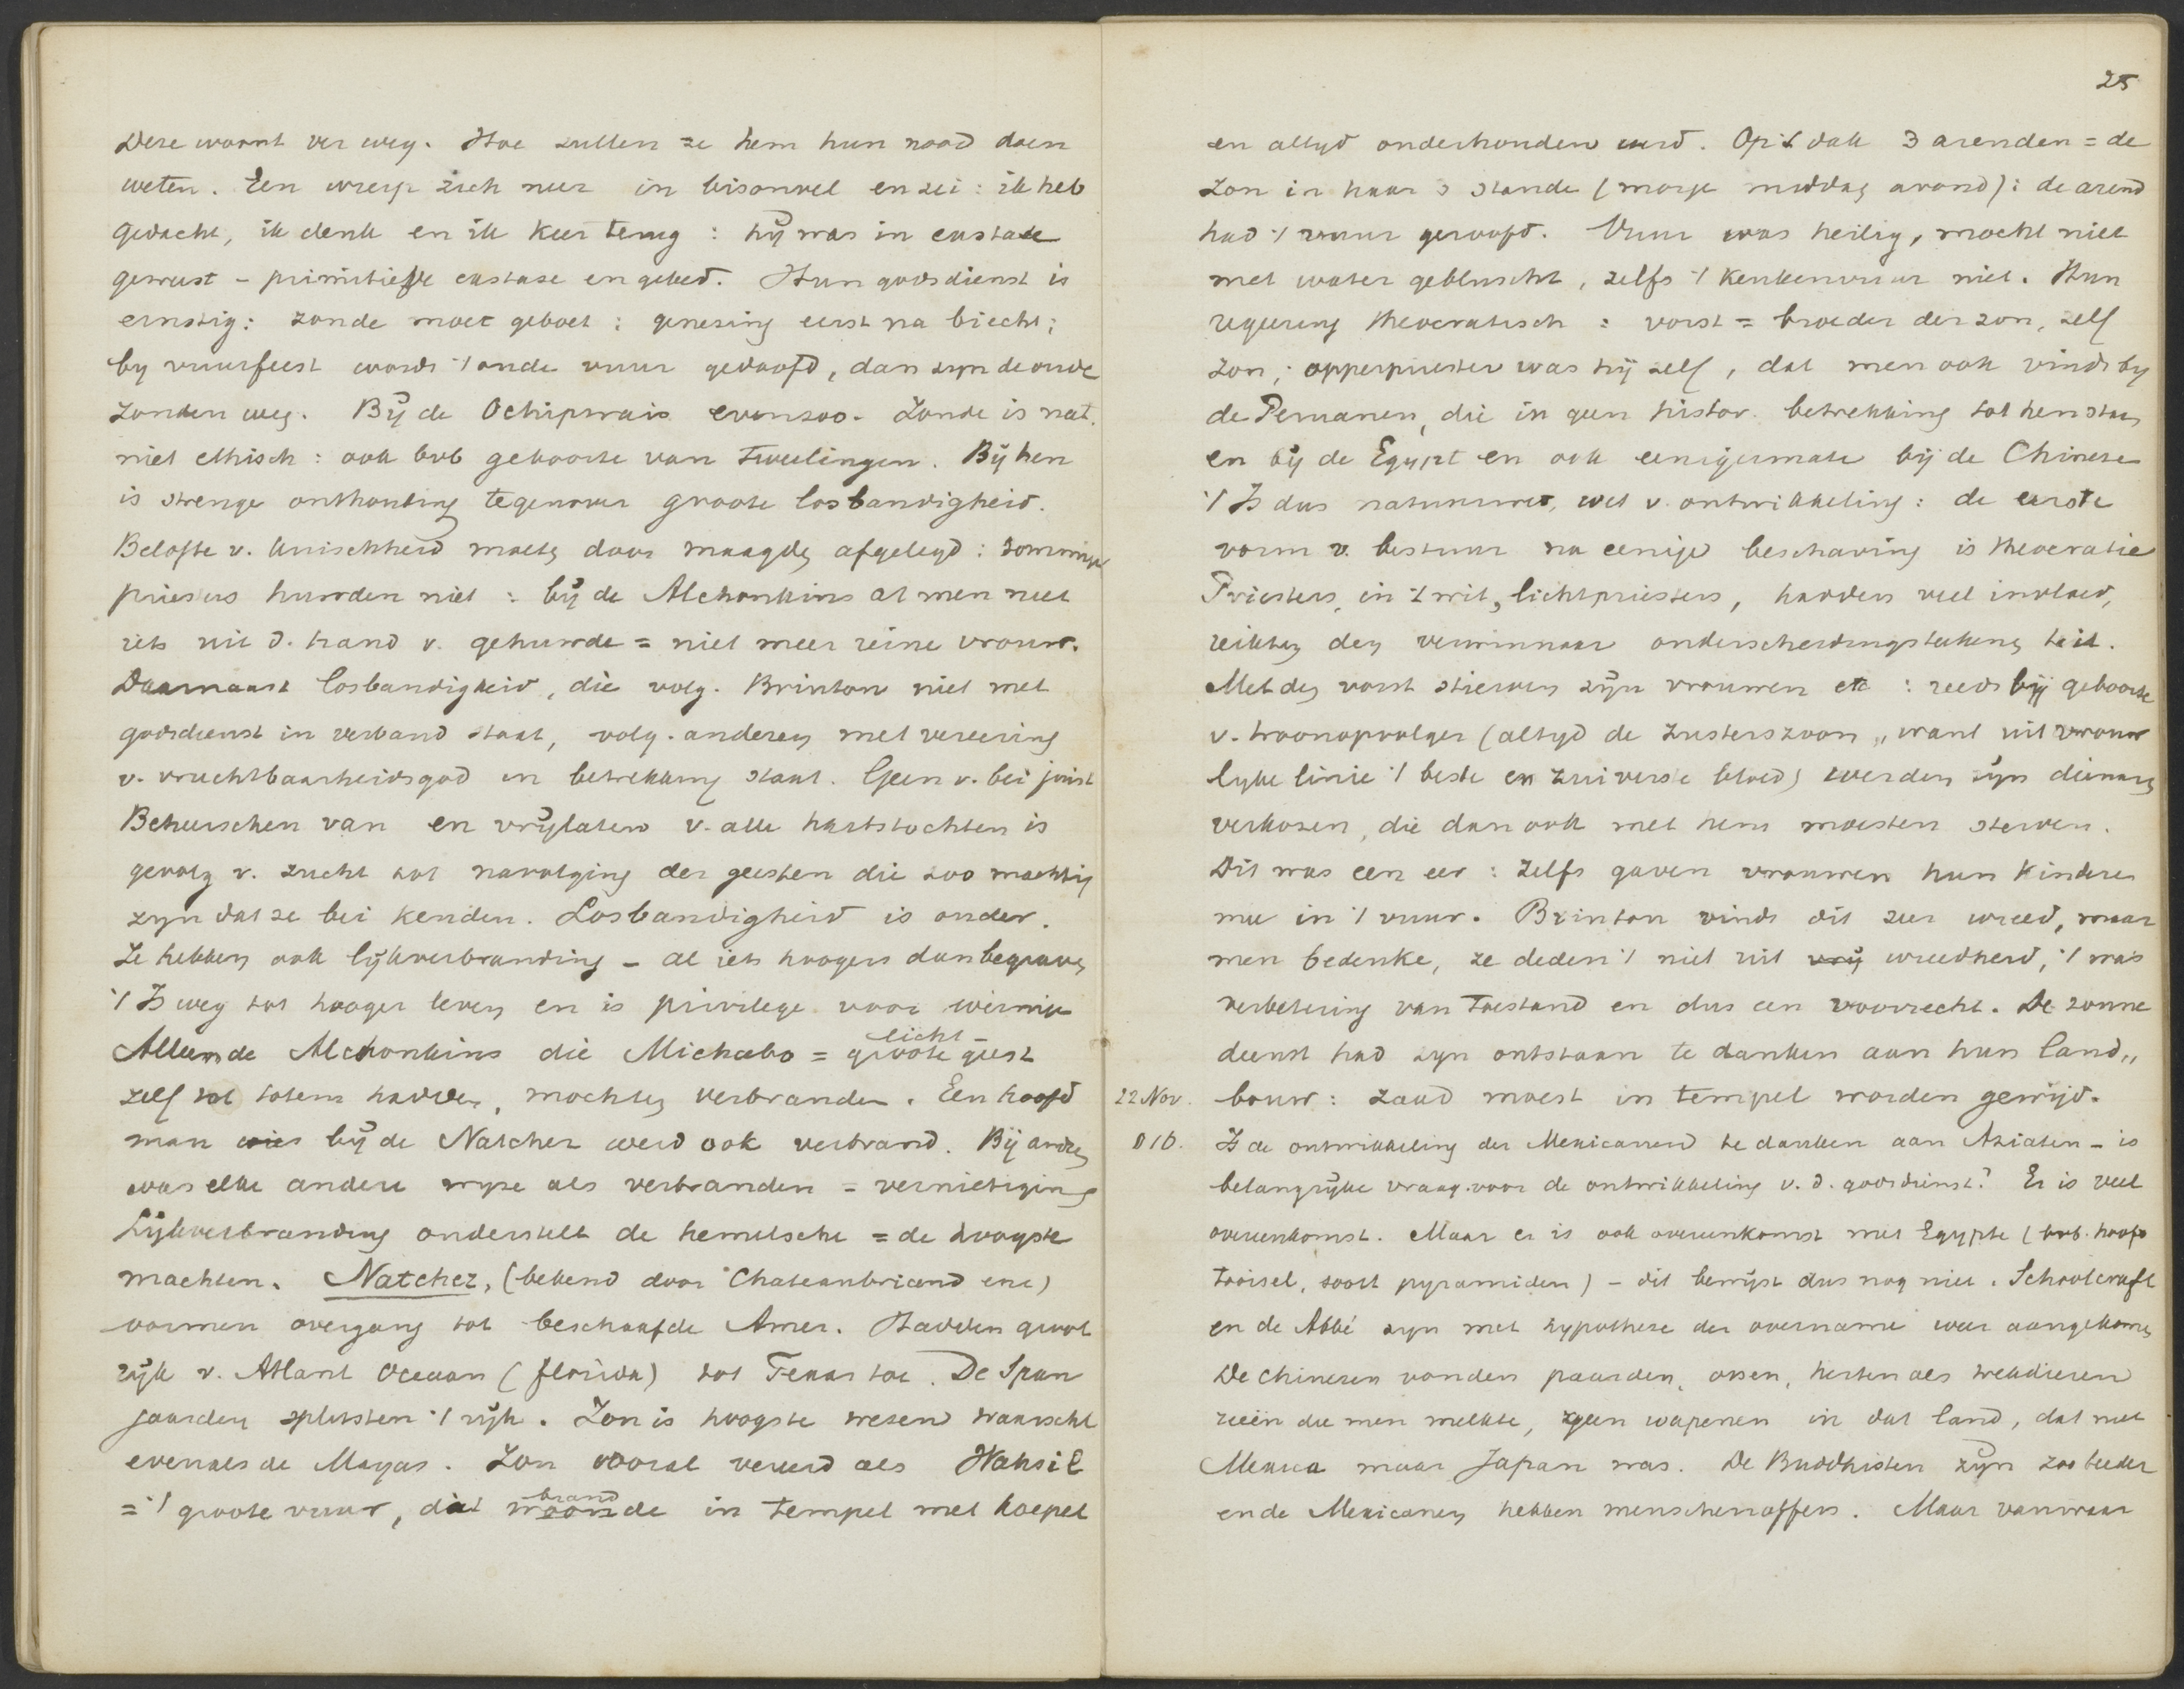 Deze woont ver weg. Hoe zullen ze hem hun nood doen
weten. Een wierp zich neer in bisonvel en zei: ik heb
gedacht, ik denk en ik keer terug: hij was in extase
geweest - primitieve extase en gebed. Hun godsdienst is
ernstig: zonde moet geboet: genezing eerst na biecht;
by vuurfeest wordt 't oude vuur gedoofd, dan zyn de oude
zonden weg. By de Ochipwais evenzoo. Zonde is nat.
niet ethisch: ook bvb geboorte van tweelingen. Bij hen
is strenge onthouding tegenover groote losbandigheid.
Belofte v. kuischheid moest door maagden afgelegd: sommige
priesters huwden niet: bij de Alchonkins at men niet
iets uit d. hand v. gehuwde = niet meer reine vrouw.
Daarnaast losbandigheid, die volg. Brinton niet met
godsdienst in verband staat, volg. anderen met vereering
v. vruchtbaarheidsgod in betrekking staat. Geen v. bei juist
Beheerschen van en vrijlaten v. alle hartstochten is
gevolg v. zucht tot navolging der geesten die zoo machtig
zyn dat ze bei kenden. Losbandigheid is ouder.
Ze hebben ook lijkverbranding - al iets hoogers dan begraven
't Is weg tot hooger leven en is privilege voor weinige
Alleen de Alchonkins die Michabo = groote geest
licht-
zelf tot totem hadden, mochten verbranden. Een hoofd
man bij de Natchez werd ook verbrand. Bij andren
was elke andere wyze als verbranden = vernietiging
Lijkverbranding onderstelt de hemelsche = de hoogste
machten. Natchez, (bekend door Chateaubriand enz)
vormen overgang tot beschaafde Amer. Hadden groot
rijk v. Atlant Oceaan (florida) tot Texas toe. De Span
jaarden splitsten 't rijk. Zon is hoogste wezen waarschl
evenals de Mayas. Zon vooral vereerd als Wahsil
= 't groote vuur, dat woonde in tempel met koepel
brand
25
en altyd onderhouden werd. Op 't dak 3 arenden = de
zon in haar 3 stande (morge middag avond): de arend
had 't vuur geroofd. Vuur was heilig, mocht niet
met water gebluscht, zelfs 't keukenvuur niet. Hun
regeering theocratisch: vorst = broeder der zon, zelf
zon; opperpriester was hij zelf, dat men ook vindt by
de Peruanen, die in geen histor. betrekking tot hen staan
en bij de Egypt en ook eenigermate bij de Chineze
't Is dus natuurwet, wet v. ontwikkeling: de eerste
vorm v. bestuur na eenige beschaving is theocratie
Priesters, in 't wit, lichtpriesters, hadden veel invloed,
reikten den verwinnaar onderscheidingsteekens uit.
Met den vorst stierven zijn vrouwen etc: reeds bij geboorte
v. troonopvolger (altyd de zusterszoon „want uit vrouw
lyke linie 't beste en zuiverste bloed) werden zijn dienaren
verkozen, die dan ook met hem moesten sterven.
Dit was een eer: zelfs gaven vrouwen hun kinderen
mee in 't vuur. Brinton vindt dit zeer wreed, maar
men bedenke, ze deden 't niet uit vrij wreedheid, 't was
verbetering van toestand en dus een voorrecht. De zonne
dienst had zyn ontstaan te danken aan hun land„
22 Nov. bouw: zaad moest in tempel worden gewijd.
Is de ontwikkeling der Mexicanen te danken aan Aziaten - is
belangrijke vraag voor de ontwikkeling v. d. godsdienst? Er is veel
overeenkomst. Maar er is ook overeenkomst met Egypte (bvb. hoofd
tooisel, soort pyramiden) - dit bewijst dus nog niet. Schoolcraft
en de Abbé zyn met hypothese der overname weer aangekomen
De chinezen vonden paarden, ossen, herten als trekdieren
reeën die men melkte, geen wapenen in dat land, dat niet
Mexico maar Japan was. De Buddhisten zijn zoo teeder
en de Mexicanen hebben menschenoffers. Maar vanwaar